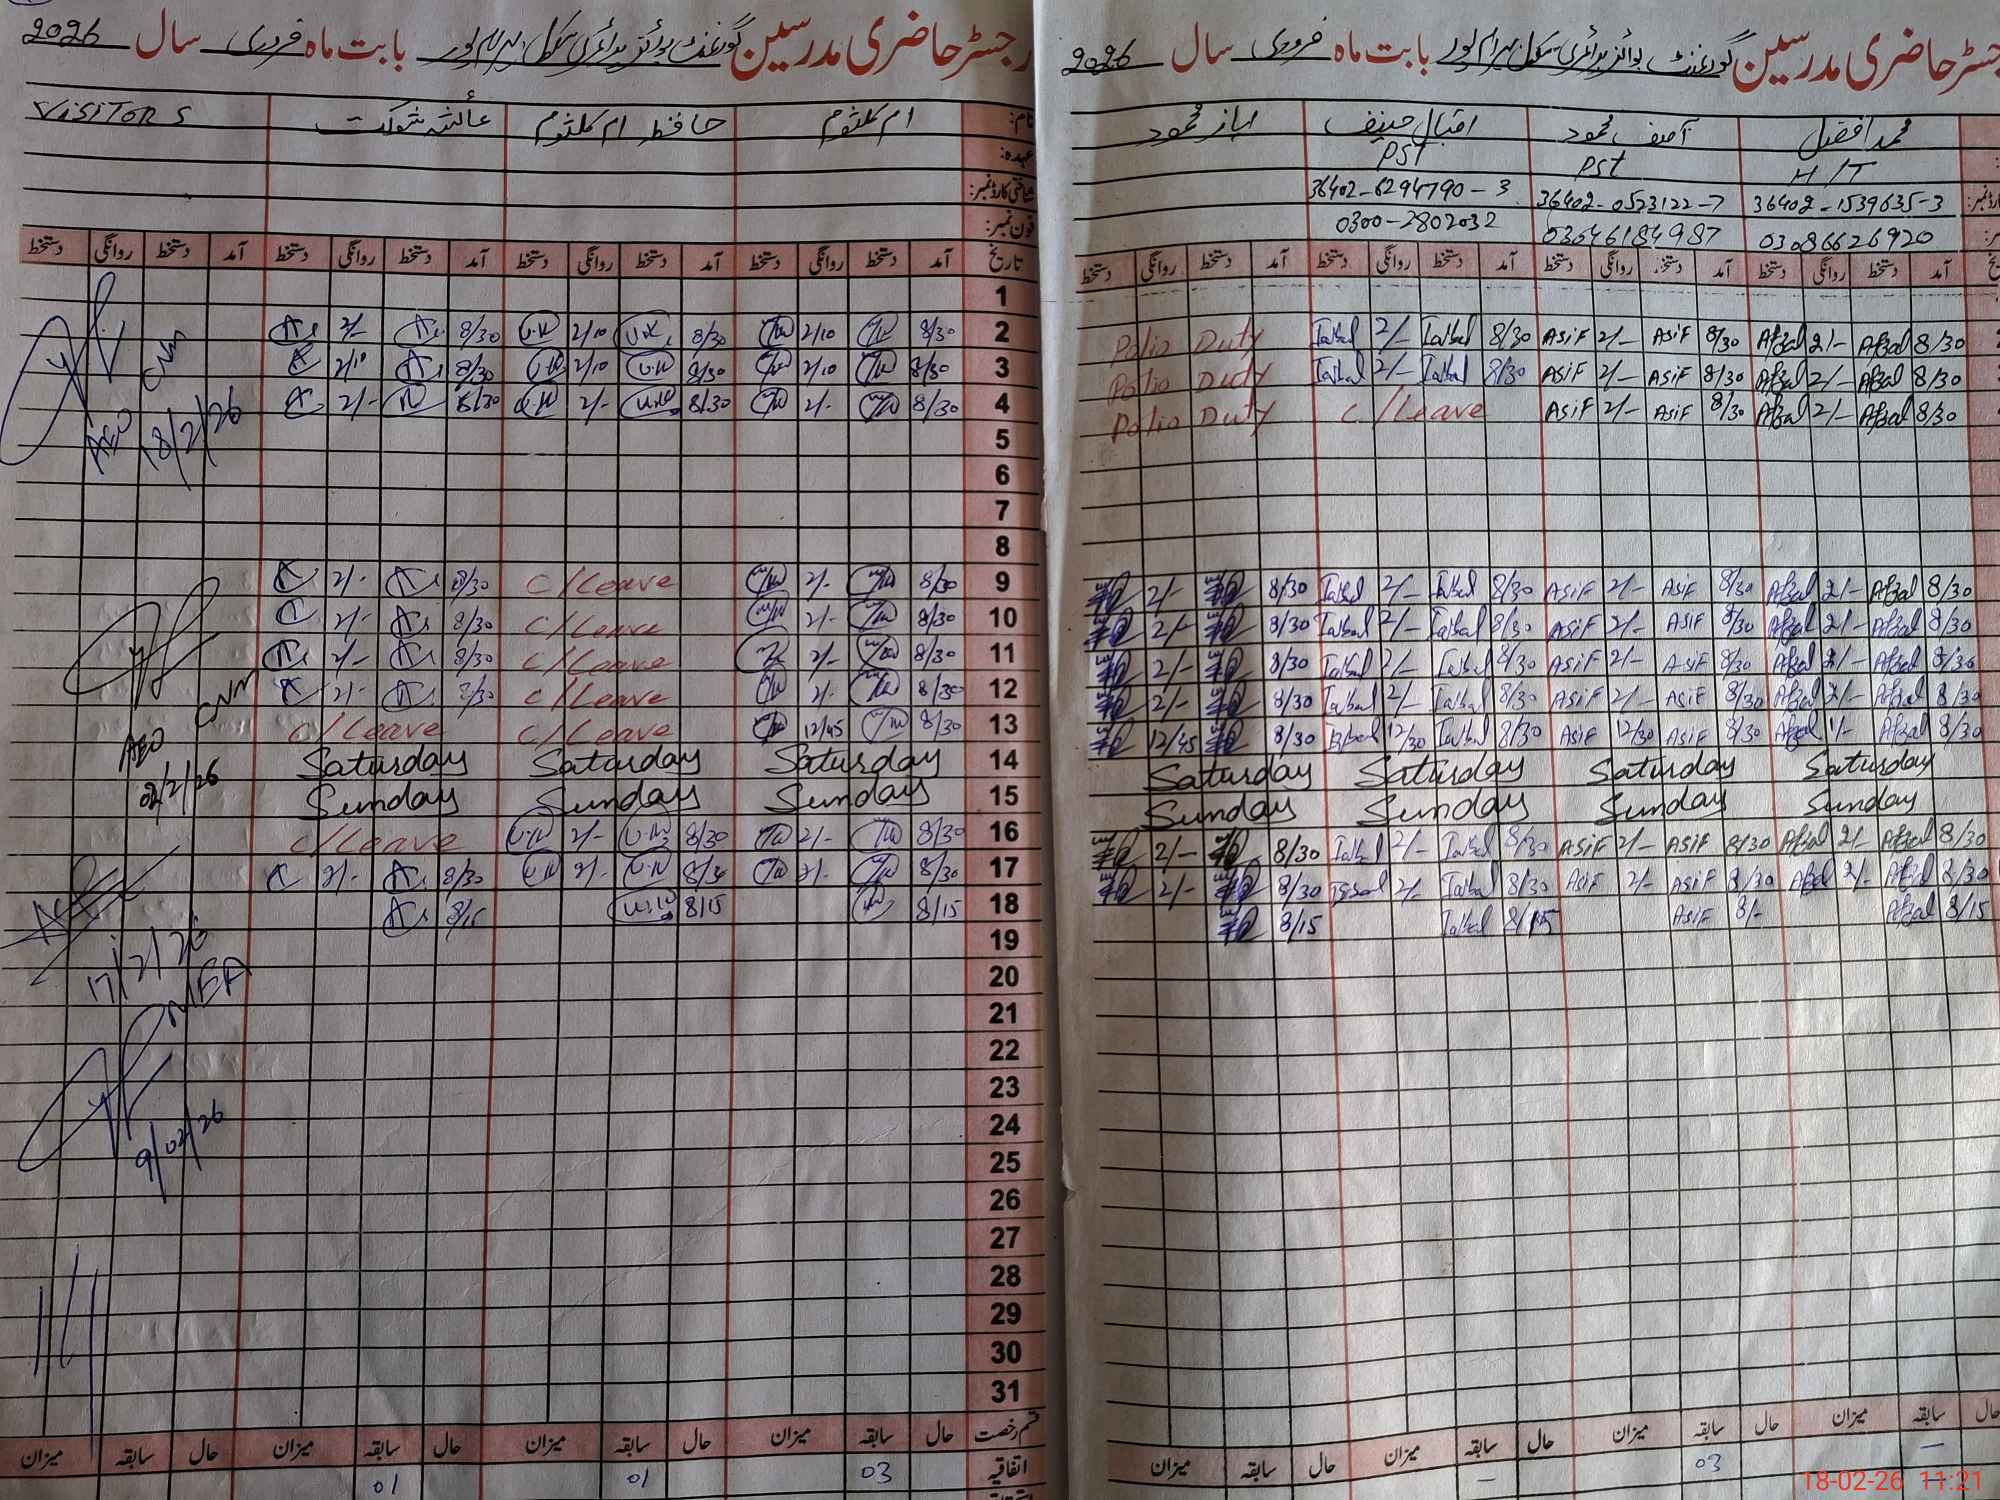 رجسٹر حاضری مدرسین گورنمنٹ بوائز پرائمری سکول بہرام پور بابت ماہ فروری سال 2026
نام: ام کلثوم حافظہ ام کلثوم عائشہ شوکت VISITORS
عہدہ:
شناختی کارڈ نمبر:
فون نمبر:
تاریخ آمد دستخط روانگی دستخط آمد دستخط روانگی دستخط آمد دستخط روانگی دستخط آمد دستخط روانگی دستخط
1
2 8/30 2/10 8/30 U.K 2/10 U.K 8/30 2/-
3 8/30 2/10 8/30 U.K 2/10 U.K 8/30 2/10
4 8/30 2/- 8/30 2/- 8/30 2/-
AEO CNM
18/2/26
5
6
7
8
9 8/30 2/- C/Leave 8/30 2/-
10 8/30 2/- C/Leave 8/30 2/-
11 8/30 2/- C/Leave 8/30 2/-
12 8/30 2/- C/Leave 8/30 2/-
13 8/30 12/45 C/Leave C/Leave
AEO CNM
02/2/26
14 Saturday Saturday Saturday
15 Sunday Sunday Sunday
16 8/30 2/- 8/30 2/- C/Leave
17 8/30 2/- 8/30 2/- 8/30 2/-
18 8/15 8/15 8/15
17/2/26
MEA
19
20
21
22
23
9/02/26
24
25
26
27
28
29
30
31
قسم رخصت حال سابقہ میزان حال سابقہ میزان حال سابقہ میزان حال سابقہ میزان
اتفاقیہ 03 01 01
رجسٹر حاضری مدرسین گورنمنٹ بوائز پرائمری سکول بہرام پور بابت ماہ فروری سال 2026
محمد افضل آصف محمود اقبال حنیف ایاز محمود
H/T PST PST
36402-1539635-3 36402-0523122-7 36402-6294790-3
03086626920 03046184987 0300-2802032
آمد دستخط روانگی دستخط آمد دستخط روانگی دستخط آمد دستخط روانگی دستخط آمد دستخط روانگی دستخط
8/30 Afzal 2/- Afzal 8/30 Asif 2/- Asif 8/30 Iqbal 2/- Iqbal Polio Duty
8/30 Afzal 2/- Afzal 8/30 Asif 2/- Asif 8/30 Iqbal 2/- Iqbal Polio Duty
8/30 Afzal 2/- Afzal 8/30 Asif 2/- Asif C/Leave Polio Duty
8/30 Afzal 2/- Afzal 8/30 Asif 2/- Asif 8/30 Iqbal 2/- Iqbal 8/30 2/-
8/30 Afzal 2/- Afzal 8/30 Asif 2/- Asif 8/30 Iqbal 2/- Iqbal 8/30 2/-
8/30 Afzal 2/- Afzal 8/30 Asif 2/- Asif 8/30 Iqbal 2/- Iqbal 8/30 2/-
8/30 Afzal 2/- Afzal 8/30 Asif 2/- Asif 8/30 Iqbal 2/- Iqbal 8/30 2/-
8/30 Afzal 1/- Afzal 8/30 Asif 12/30 Asif 8/30 Iqbal 12/30 Iqbal 8/30 12/45
Saturday Saturday Saturday Saturday
Sunday Sunday Sunday Sunday
8/30 Afzal 2/- Afzal 8/30 Asif 2/- Asif 8/30 Iqbal 2/- Iqbal 8/30 2/-
8/30 Afzal 2/- Afzal 8/30 Asif 2/- Asif 8/30 Iqbal 2/- Iqbal 8/30 2/-
8/15 Afzal 8/- Asif 8/15 Iqbal 8/15
حال سابقہ میزان حال سابقہ میزان حال سابقہ میزان حال سابقہ میزان
— 03 —
18-02-26 11:21